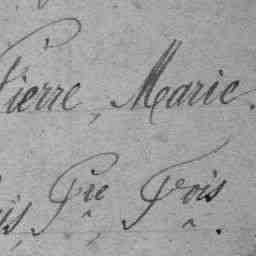 Pierre, Marie.
Pre Fois.